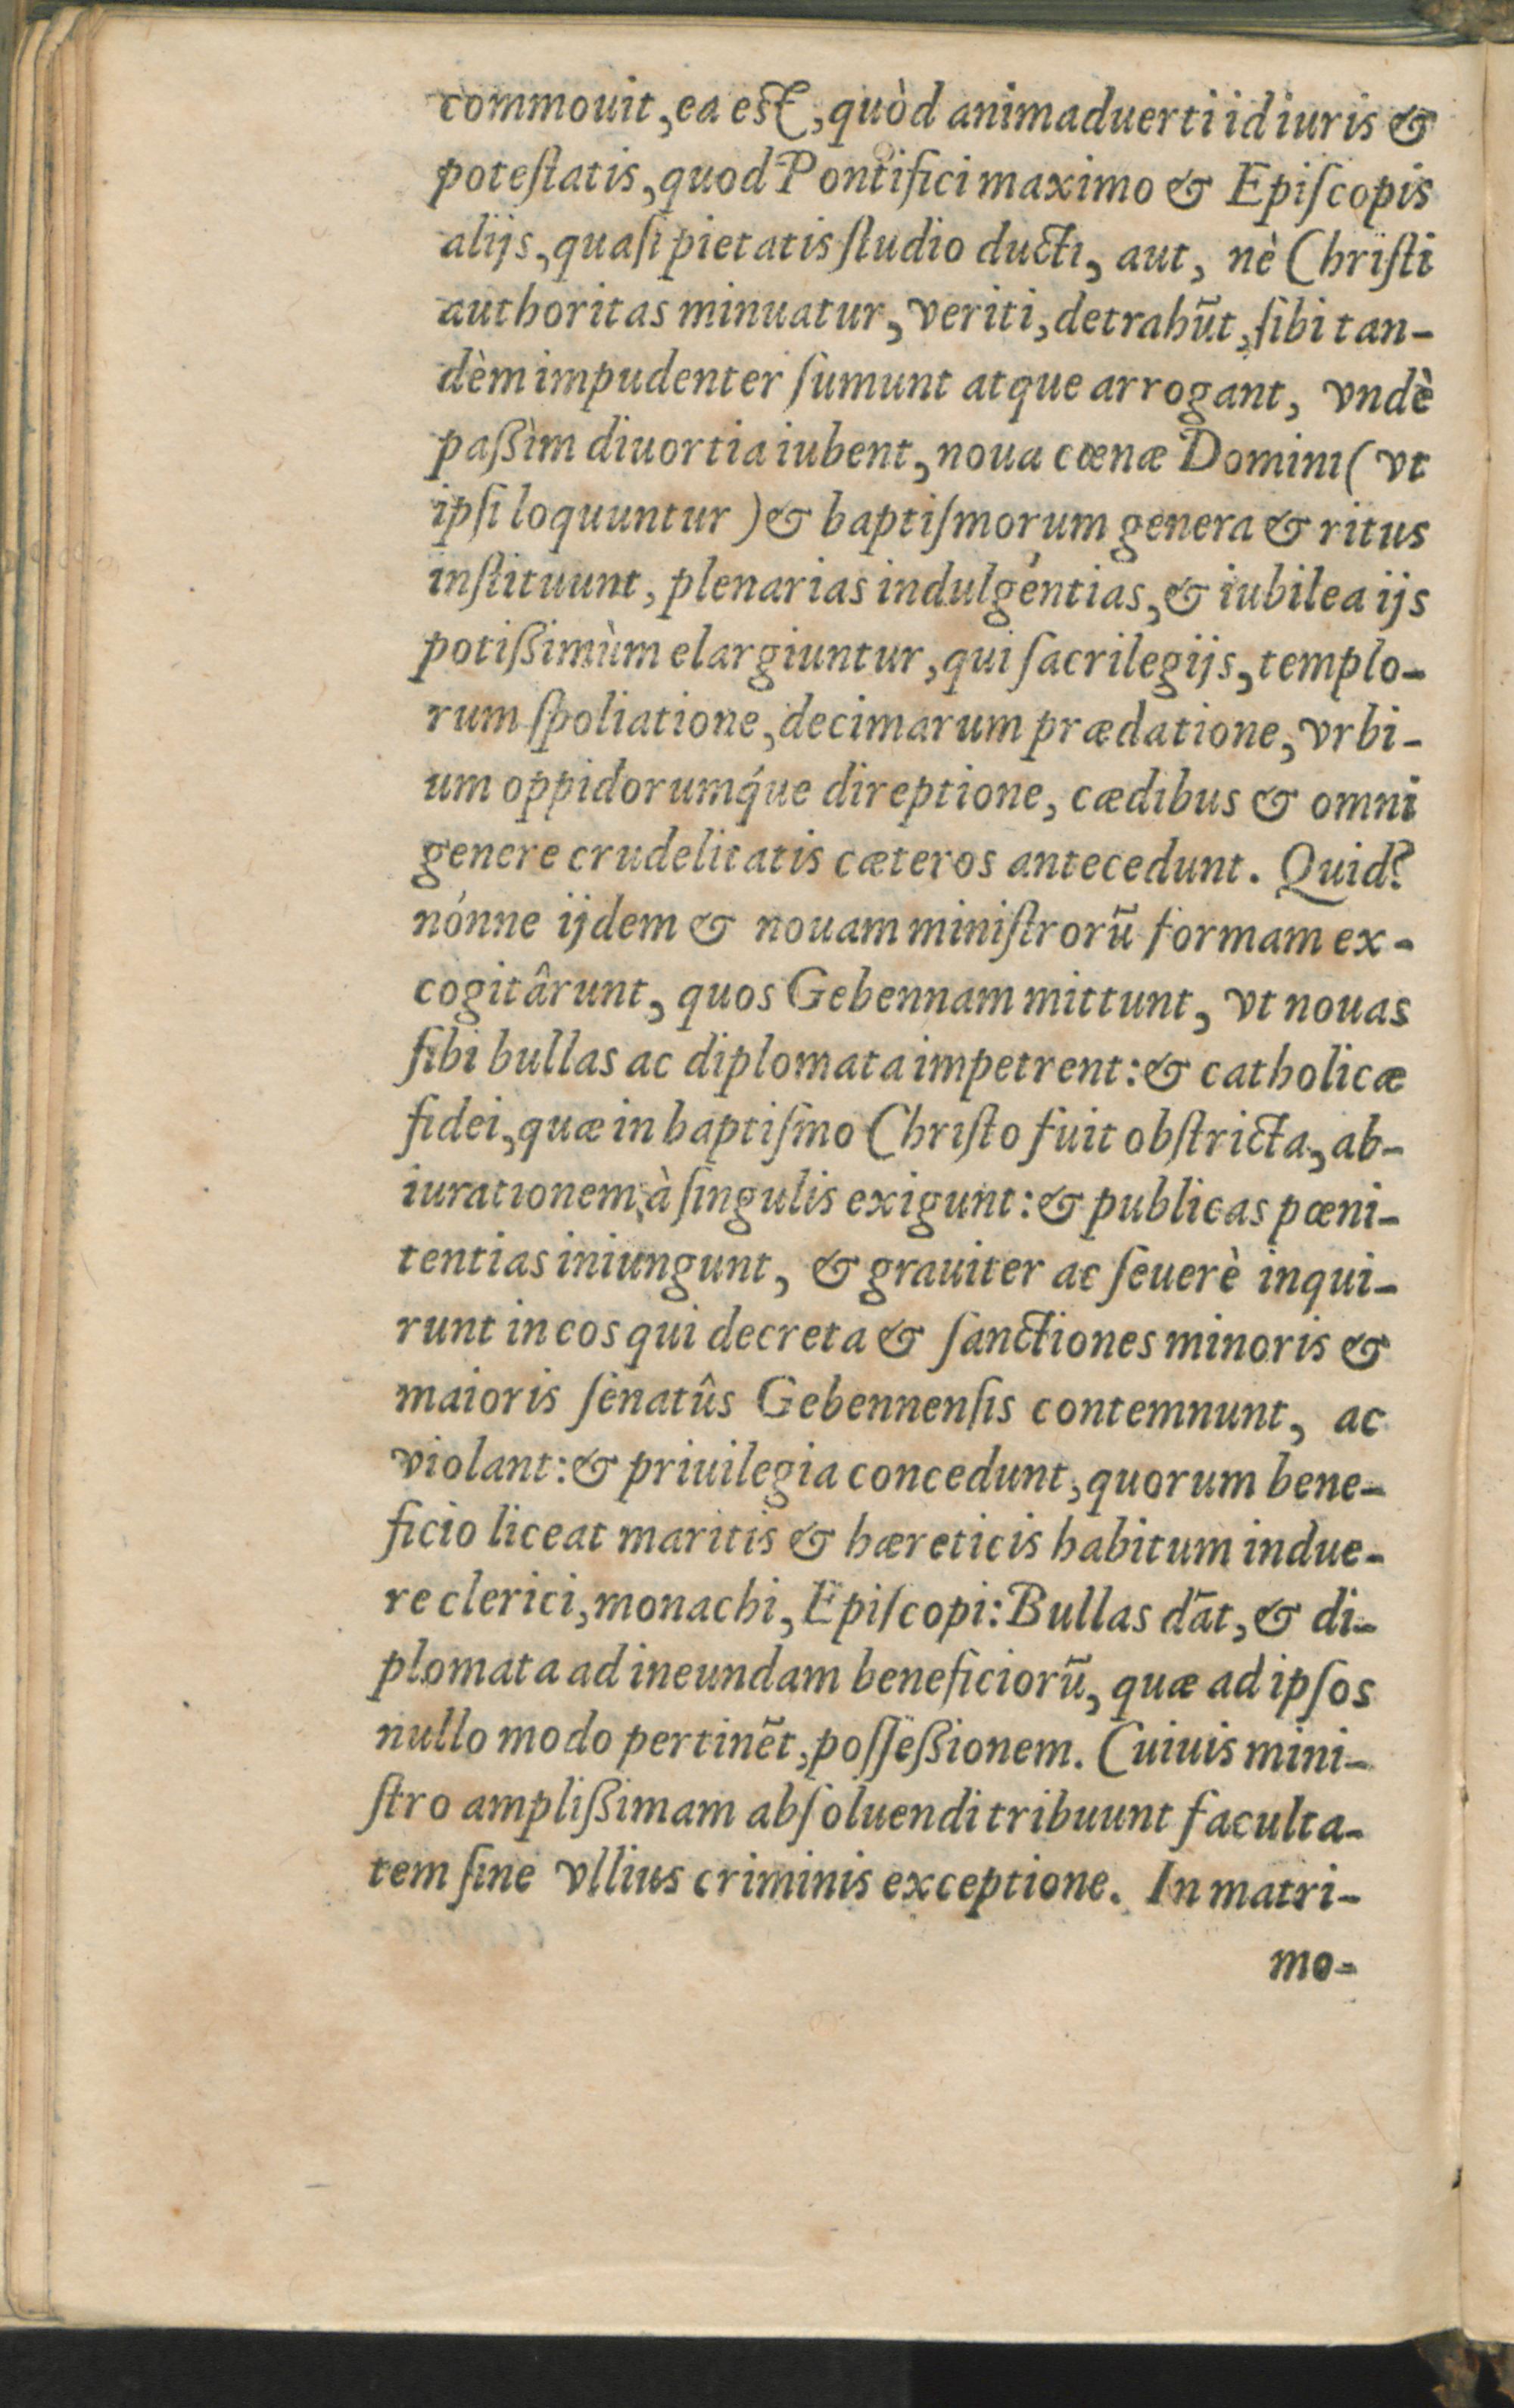 commouit, ea est, quòd animaduerti id iuris &
poteſtatis, quod Pontifici maximo & Epiſcopis
alijs, quaſi pietatis ſtudio ducti, aut, nè Chriſti
authoritas minuatur, veriti, detrahūt, ſibi tan-
dèm impudenter ſumunt atque arrogant, vndè
paßìm diuortia iubent, noua cœnæ Domini (vt
ipſi loquuntur) & baptiſmorum genera & ritus
inſtituunt, plenarias indulgéntias, & iubilea ijs
potißimùm elargiuntur, qui ſacrilegijs, templo-
rum ſpoliatione, decimarum prædatione, vrbi-
um oppidorumq́ue direptione, cædibus & omni
genere crudelitatis cæteros antecedunt. Quid?
nónne ijdem & nouam miniſtrorū formam ex-
cogitârunt, quos Gebennam mittunt, vt nouas
ſibi bullas ac diplomata impetrent: & catholicæ
fidei, quæ in baptiſmo Chriſto fuit obſtricta, ab-
iurationem à ſingulis exigunt: & publicas pœni-
tentias iniungunt, & grauiter ac ſeuerè inqui-
runt in eos qui decreta & ſanctiones minoris &
maioris ſenatûs Gebennenſis contemnunt, ac
violant: & priuilegia concedunt, quorum bene-
ficio liceat maritis & hæreticis habitum indue-
re clerici, monachi, Epiſcopi: Bullas dāt, & di-
plomata ad ineundam beneficiorū, quæ ad ipſos
nullo modo pertinēt, poſſeßionem. Cuiuis mini-
ſtro amplißimam abſoluendi tribuunt faculta-
tem ſine vllius criminis exceptione. In matri-
mo-